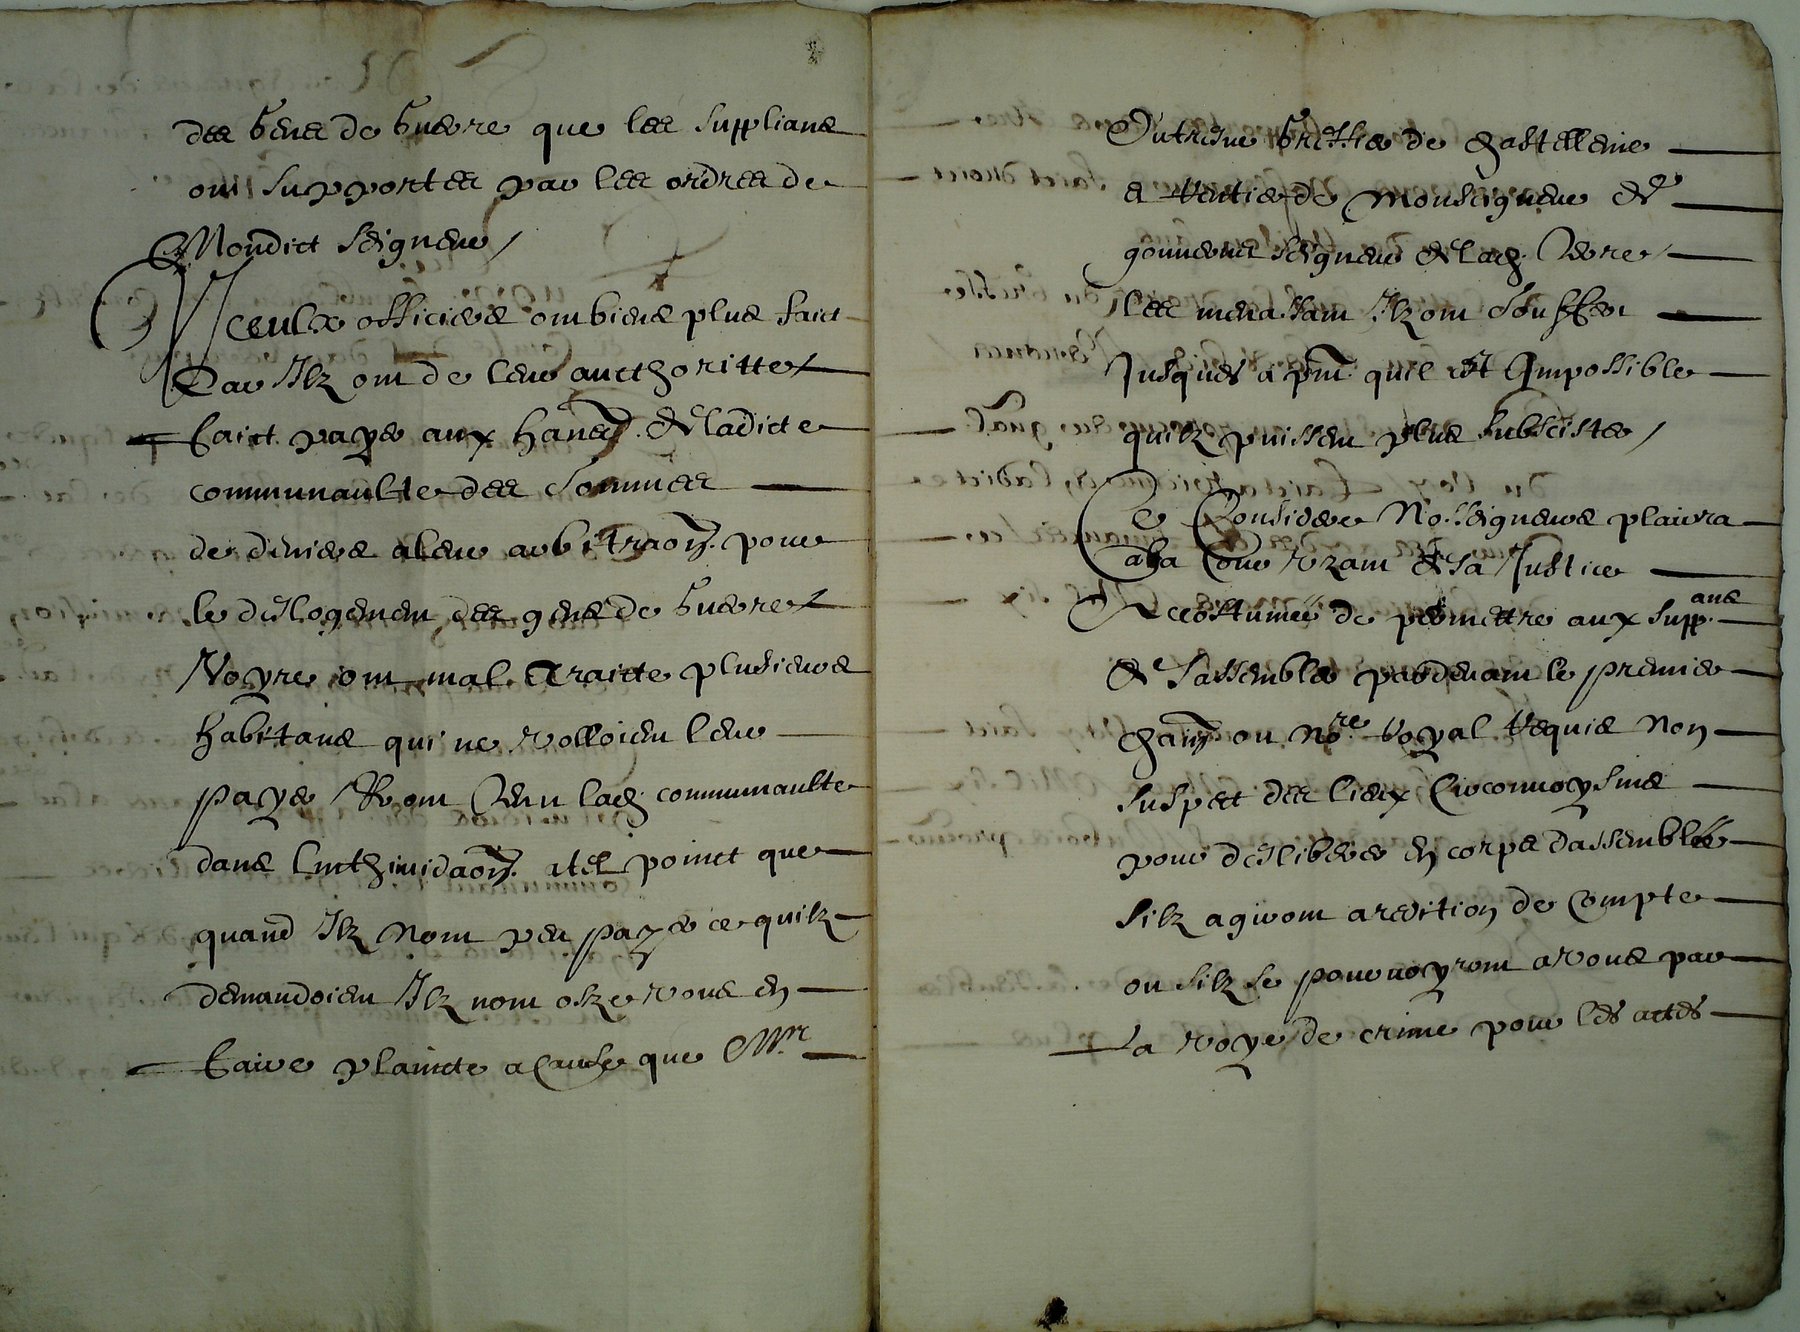 des gens de guerre que les supplians
ont supportes par les ordres de
Mondict seigneur /
Yceulx officiers ont biens plus faict
Car Ilz ont de leur aucthoritte
faict payer aux hanans de ladicte
communaulte des sommes
de deniers a leur arbittraon pour
le deslogement des gens de guerre
Voyre ont mal traitte plusieurs
habitans qui ne volloient leur
payer Et ont tenu lad communaulte
dans linthimidaon a tel poinct que
quand Ilz nont peu payer ce quilz
demandoient Ilz nont oze vous en
faire plaincte a cause que Mr
Dutresne greffier de chastellenie
a de Monseigneur de
gouvernet seigneur de lad terre
les menassant Ilz ont souffert
Jusques a pnt quil est Impossible
quilz puissent plus subcister /
Ce Considere Nosseigneurs plairra
a la Cour Uzant de sa Justice
Accostumee de permettre aux supp.ans
de sassembler pardevant le premier
chain ou nore royal requis non
suspect des lieux circonvoysins
pour deslibérer en corps dassemblée
silz agiront a redition de compte
ou silz se pourvoyront a vous par
La voye de crime pour les actes